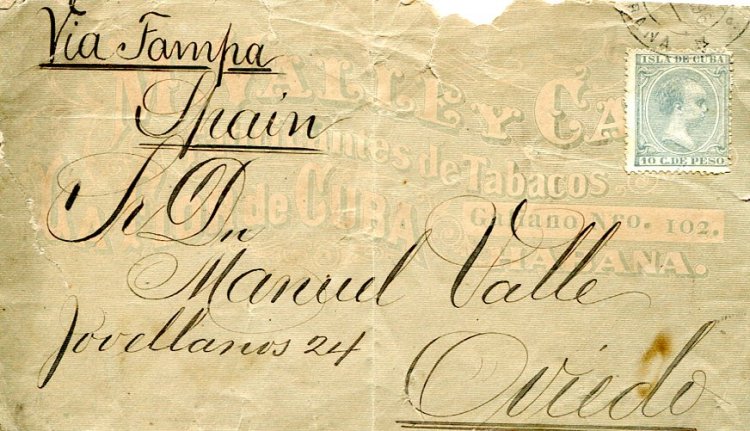 Via Tampa
Spain
Sr Dn
Manuel Valle
Jovellanos 24
Oviedo
ISLA DE CUBA
10 C. DE PESO
M. VALLE Y Ca
de Tabacos
de CUBA
Galiano Nro. 102.
HABANA.